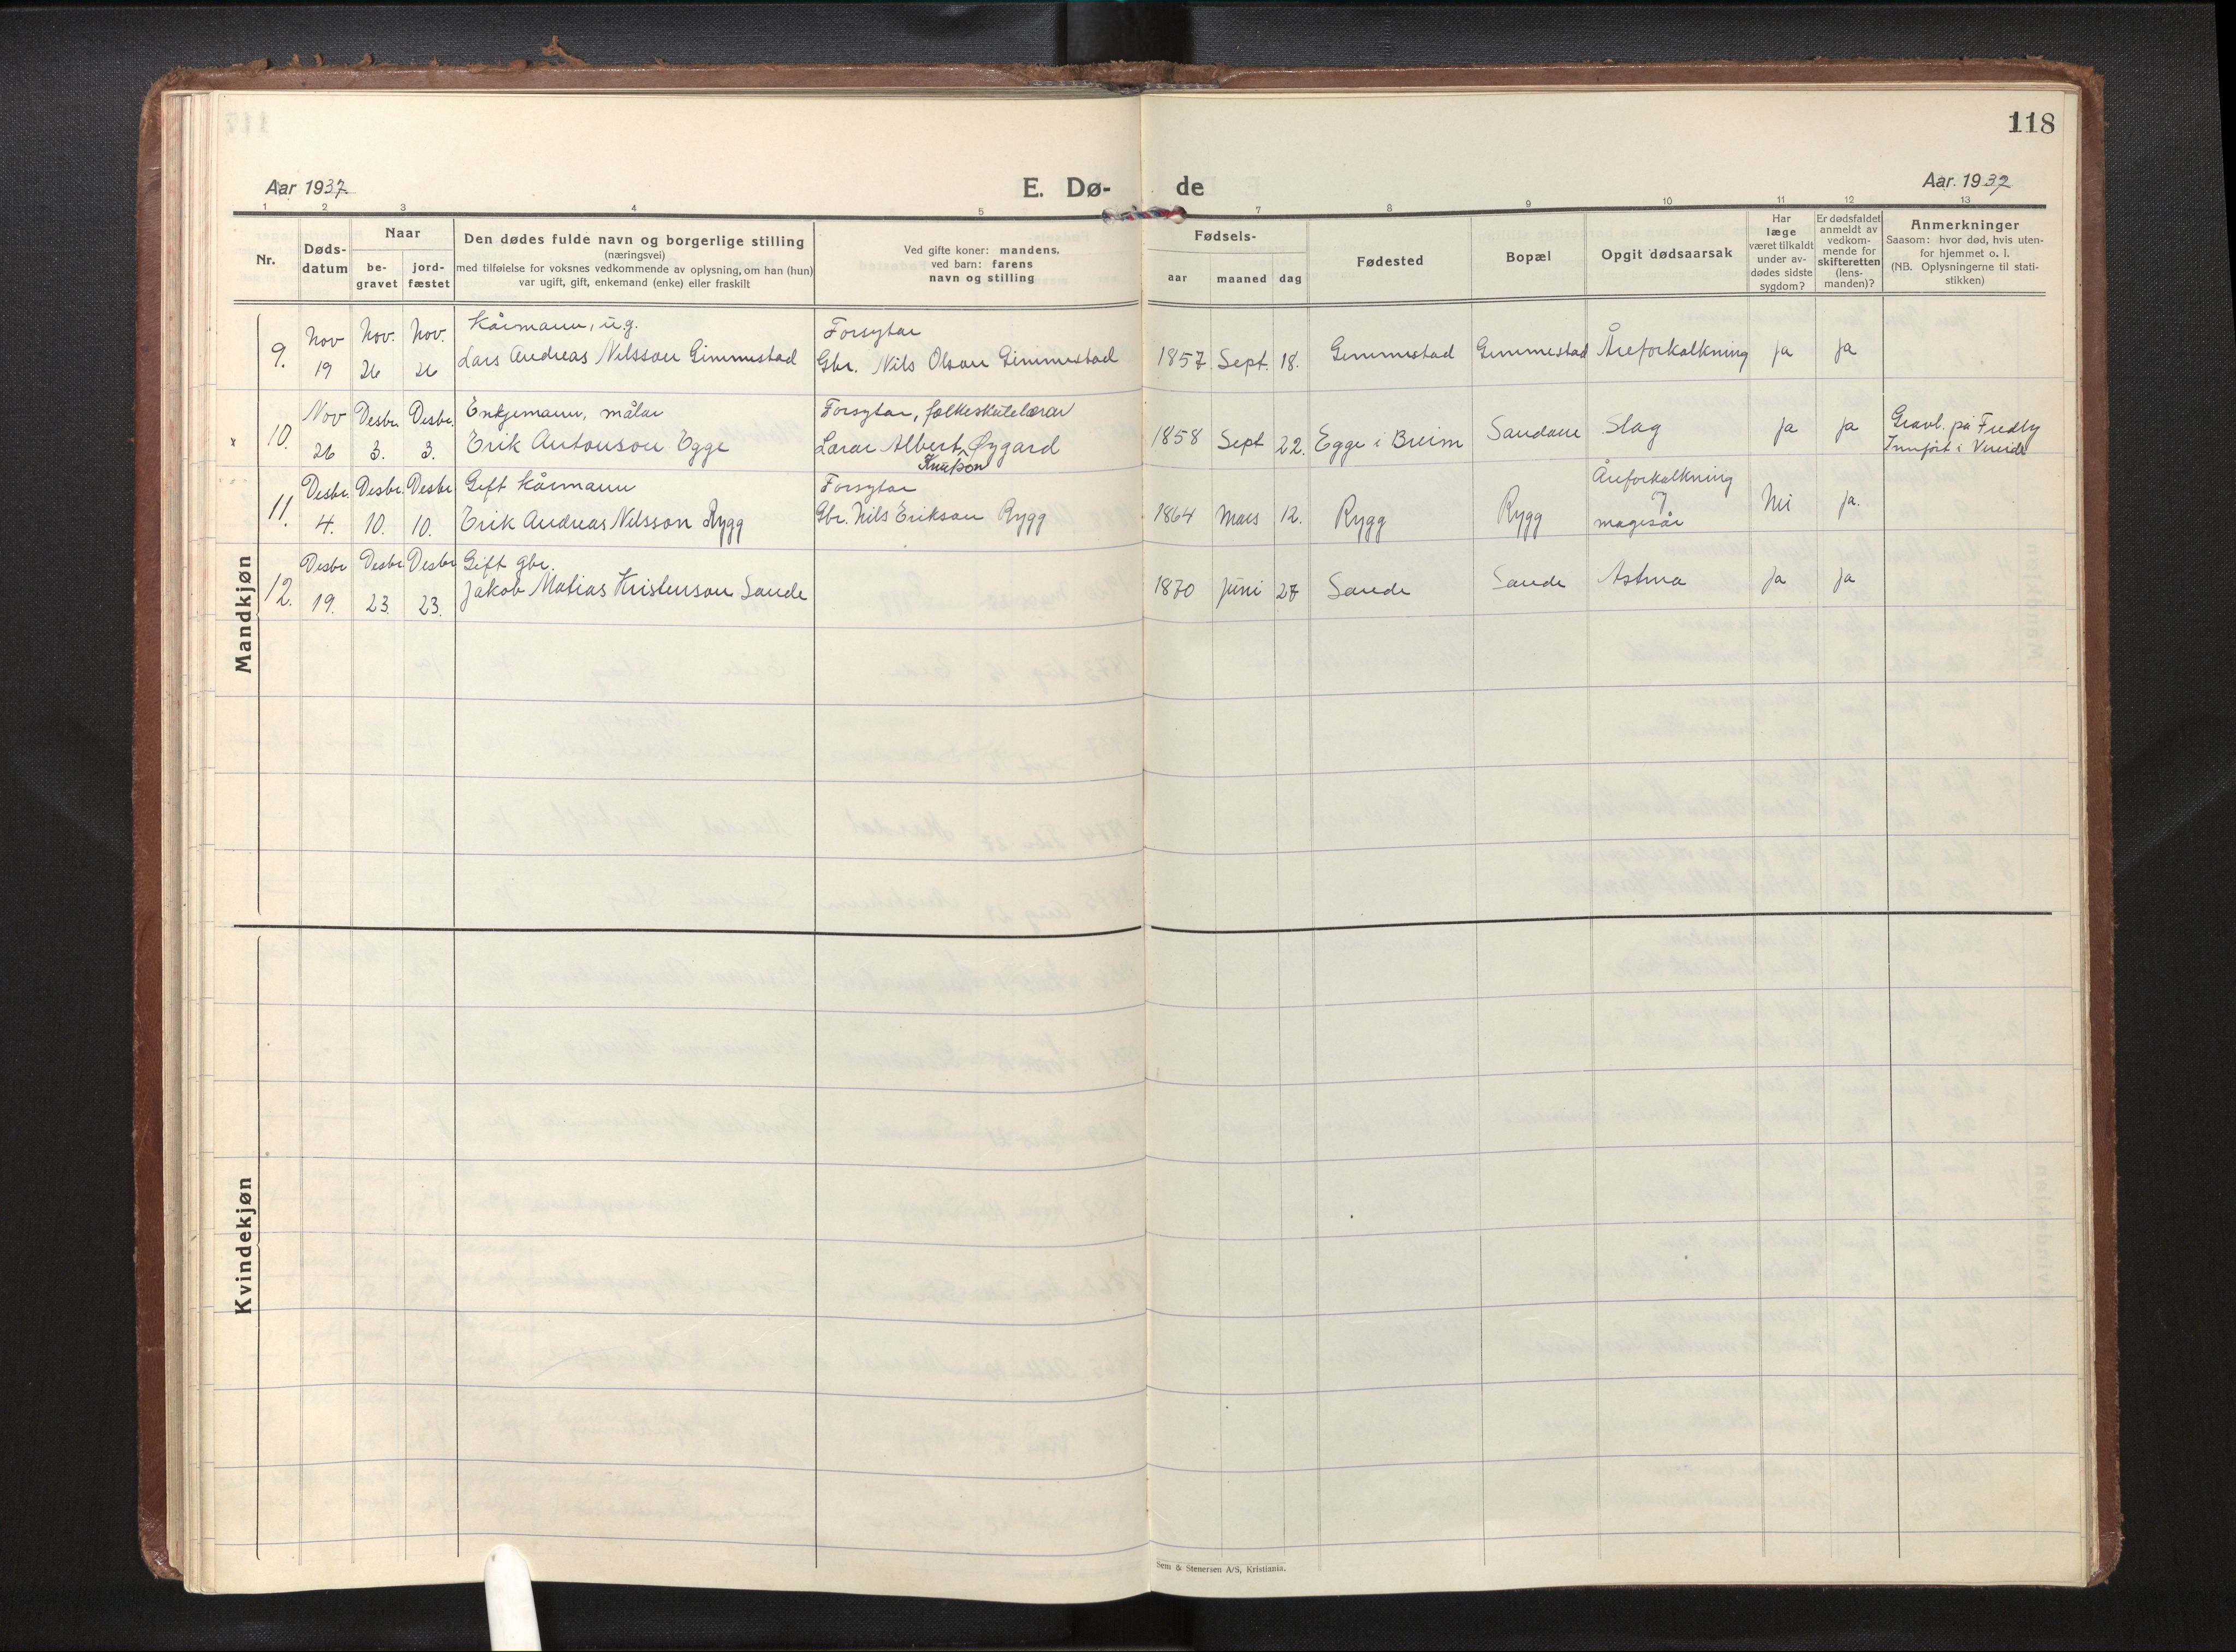 118
Aar 1937
E. Dø-
de
Aar. 1937
1 2 3 4 5 7 8 9 10 11 12 13
Nr.
Døds-
datum
Naar
be-
gravet
jord-
fæstet
Den dødes fulde navn og borgerlige stilling
(næringsvei)
med tilføielse for voksnes vedkommende av oplysning, om han (hun)
var ugift, gift, enkemand (enke) eller fraskilt
Ved gifte koner: mandens,
ved barn: farens
navn og stilling
Fødsels-
aar
maaned
dag
Fødested
Bopæl
Opgit dødsaarsak
Har
læge
været tilkaldt
under av-
dødes sidste
sygdom?
Er dødsfaldet
anmeldt av
vedkom-
mende for
skifteretten
(lens-
manden)?
Anmerkninger
Saasom: hvor død, hvis uten-
for hjemmet o. l.
(NB. Oplysningerne til stati-
stikken)
Mandkjøn
9.
Nov
19
Nov.
26
Nov.
26
Kårmann, ug.
Lars Andreas Nilsson Gimmestad
Forsytar
Gbr. Nils Olson Gimmestad
1857 Sept. 18. Gimmestad Gimmestad Åreforkalkning ja ja
x 10.
Nov
26
Desbr.
3.
Desbr.
3.
Enkjemann, målar
Erik Antonson Egge
Forsytar, folkeskulelærar
Lærar Albert Øygard
Knutson
1858 Sept 22. Egge i Breim Sandane Slag ja ja
Gravl. på Fredly
Innført i Vereide
11.
Desbr.
4.
Desbr.
10.
Desbr.
10.
Gift kårmann
Erik Andreas Nilsson Rygg
Forsytar
Gbr. Nils Erikson Rygg
1864 Mars 12. Rygg Rygg
Åreforkalkning
og
magesår
Nei ja.
12.
Desbr
19.
Desbr
23.
Desbr
23.
Gift gbr.
Jakob Matias Kristenson Sande
1870 juni 27 Sande Sande Astma ja ja
Kvindekjøn
Sem & Stenersen A/S, Kristiania.